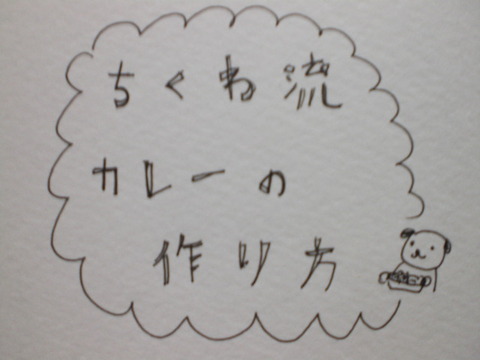 ちくわ流
カレーの
作り方